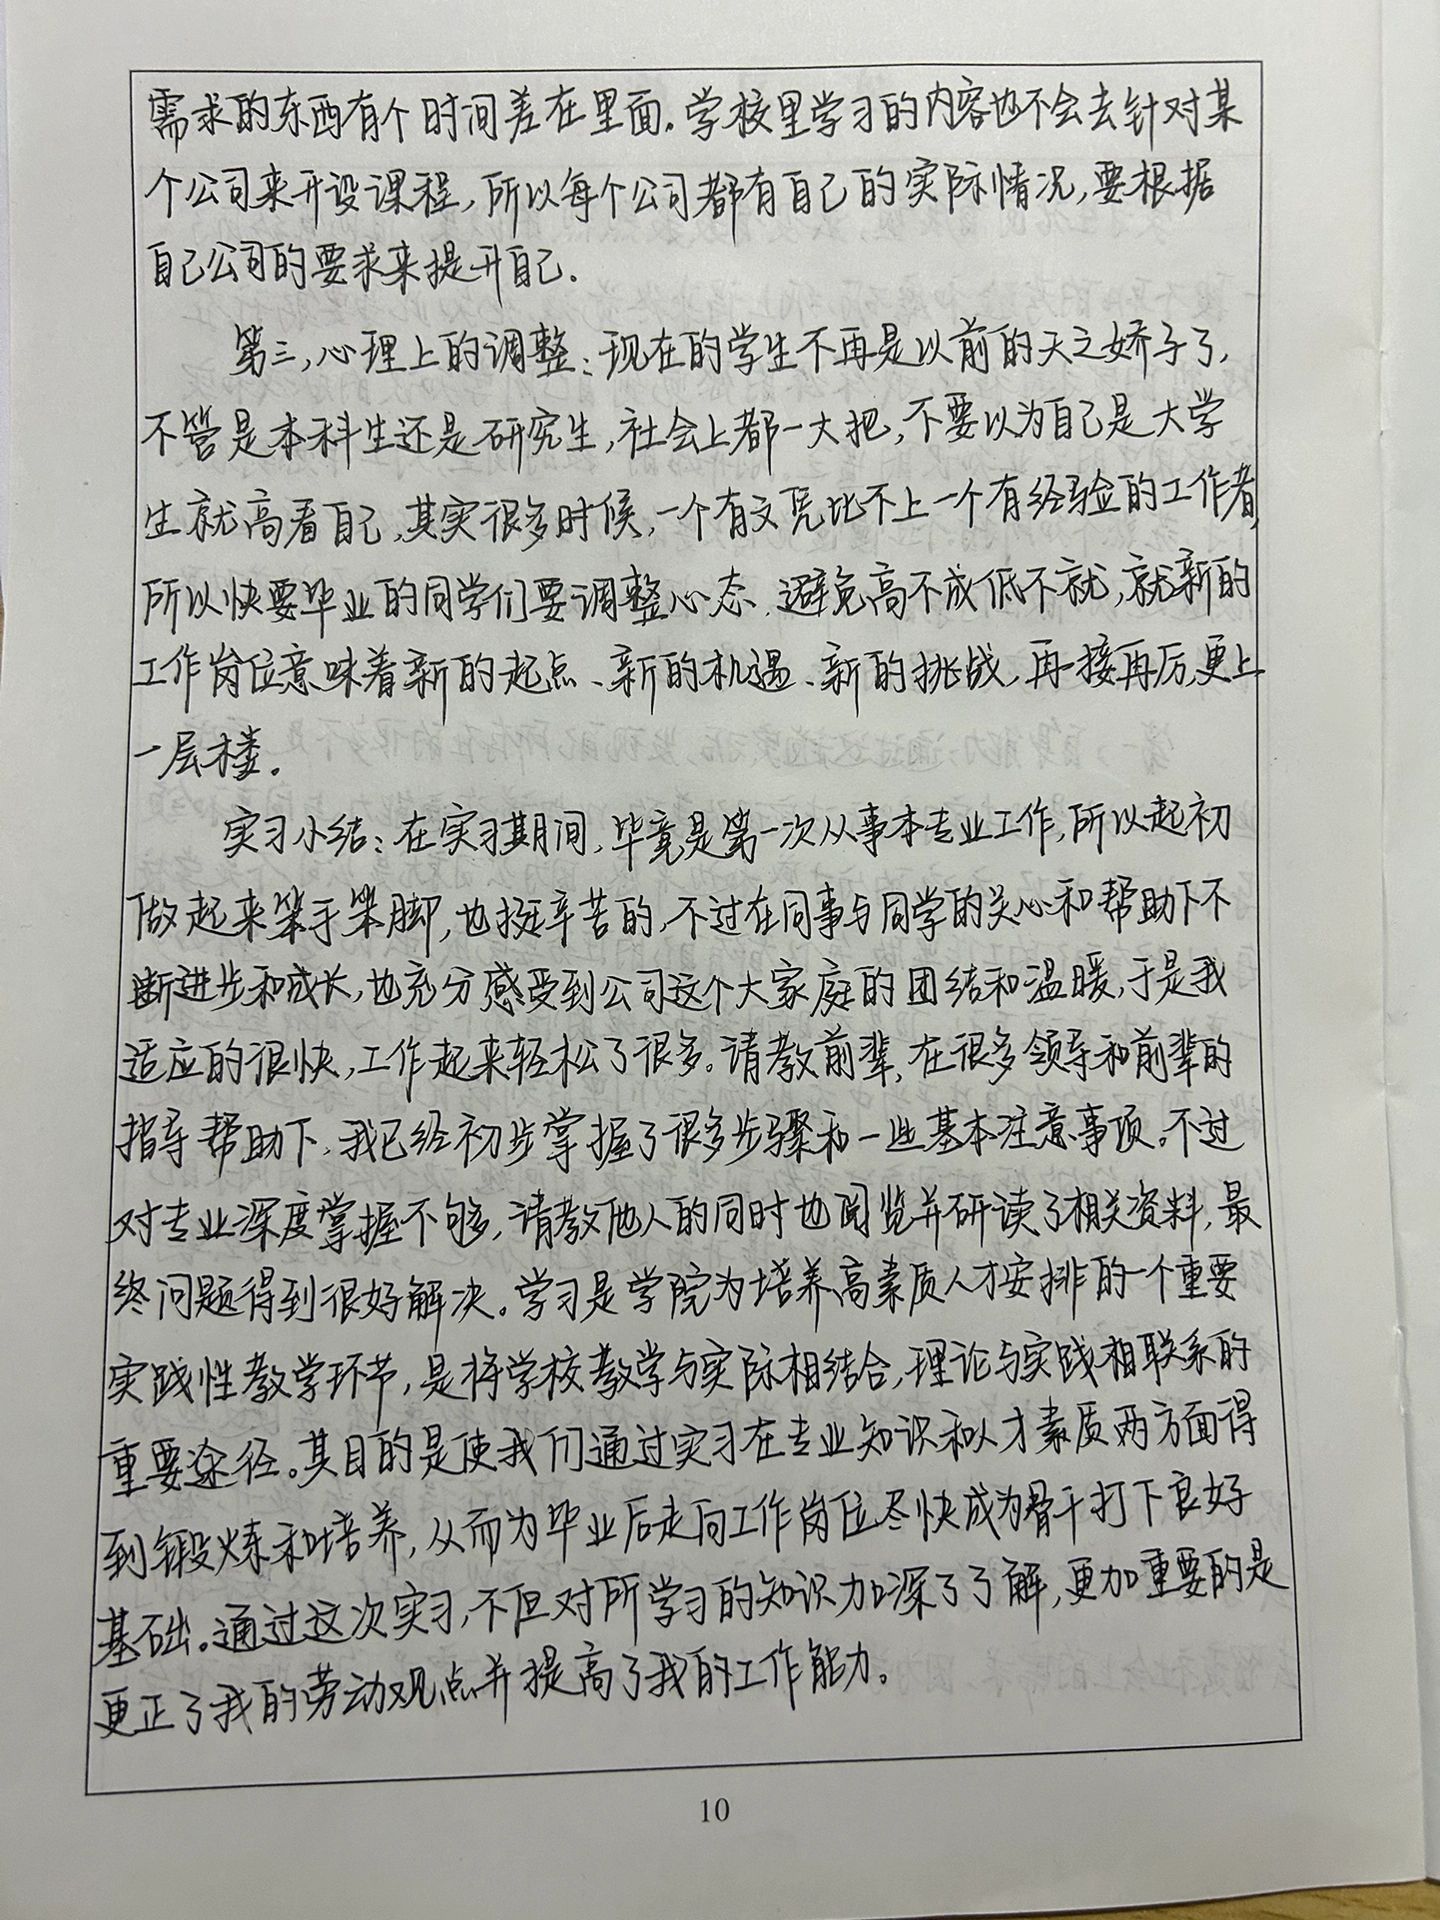 需求的东西有个时间差在里面.学校里学习的内容也不会去针对某
个公司来开设课程,所以每个公司都有自己的实际情况,要根据
自己公司的要求来提升自己.
第三,心理上的调整:现在的学生不再是以前的天之娇子了,
不管是本科生还是研究生,社会上都一大把,不要以为自己是大学
生就高看自己,其实很多时候,一个有文凭比不上一个有经验的工作者,
所以快要毕业的同学们要调整心态,避免高不成低不就,就新的
工作岗位意味着新的起点、新的机遇、新的挑战,再接再厉,更上
一层楼。
实习小结:在实习期间,毕竟是第一次从事本专业工作,所以起初
做起来笨手笨脚,也挺辛苦的,不过在同事与同学的关心和帮助下不
断进步和成长,也充分感受到公司这个大家庭的团结和温暖,于是我
适应的很快,工作起来轻松了很多。请教前辈,在很多领导和前辈的
指导帮助下,我已经初步掌握了很多步骤和一些基本注意事项。不过
对专业深度掌握不够多,请教他人的同时也阅览并研读了相关资料,最
终问题得到很好解决。学习是学院为培养高素质人才安排的一个重要
实践性教学环节,是将学校教学与实际相结合,理论与实践相联系的
重要途径。其目的是使我们通过实习在专业知识和人才素质两方面得
到锻炼和培养,从而为毕业后走向工作岗位尽快成为骨干打下良好
基础。通过这次实习,不但对所学习的知识加深了了解,更加重要的是
更正了我的劳动观点并提高了我的工作能力。
10